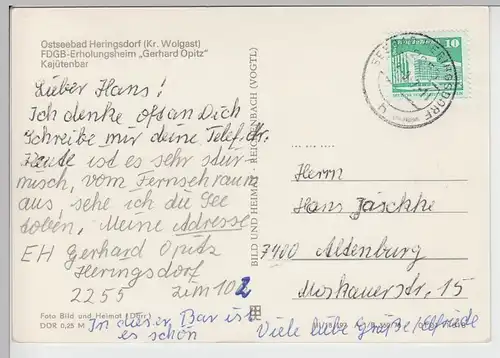 Ostseebad Heringsdorf (Kr. Wolgast)
FDGB-Erholungsheim „Gerhard Opitz"
Kajütenbar
Lieber Hans!
Ich denke oft an Dich
Schreibe mir deine Telef. Nr.
Heute ist es sehr stür-
misch, vom Fernsehraum
aus, sehe ich die See
toben, Meine Adresse
EH Gerhard Opitz
Heringsdorf
2255 Zim 102
Foto Bild und Heimat (Dörr)
DDR 0,25 M
In dieser Bar ist
es schön
BILD UND HEIMAT REICHENBACH (VOGTL)
10
SEEBAD HERINGSDORF
Herrn
Hans Jäschke
7400 Altenburg
Moskauerstr. 15
Viele liebe Grüße Elfriede